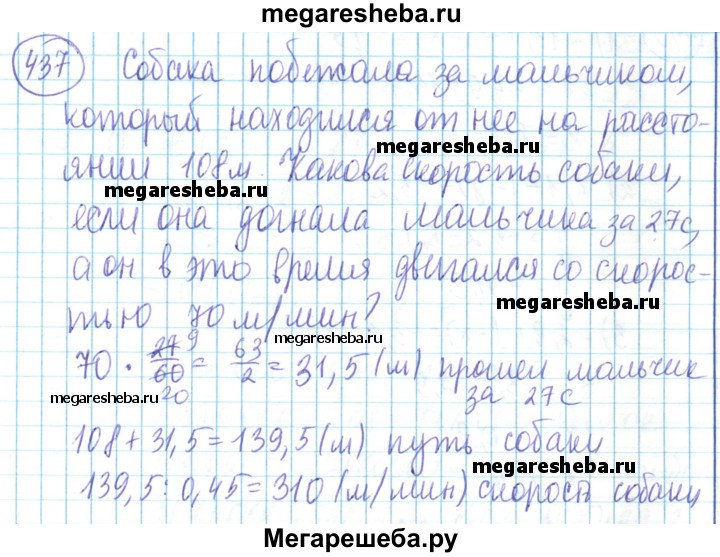 megaresheba.ru
437 Собака побежала за мальчиком,
который находился от нее на рассто-
megaresheba.ru
янии 108 м. Какова скорость собаки,
megaresheba.ru
если она догнала мальчика за 27с,
а он в это время двигался со скорос-
megaresheba.ru
тью 70 м/мин?
megaresheba.ru
70 · 27 9/60 20 = 63/2 = 31,5 (м) прошел мальчик
megaresheba.ru
за 27 с
108 + 31,5 = 139,5 (м) путь собаки
megaresheba.ru
139,5 : 0,45 = 310 (м/мин) скорость собаки
Мегарешеба.ру